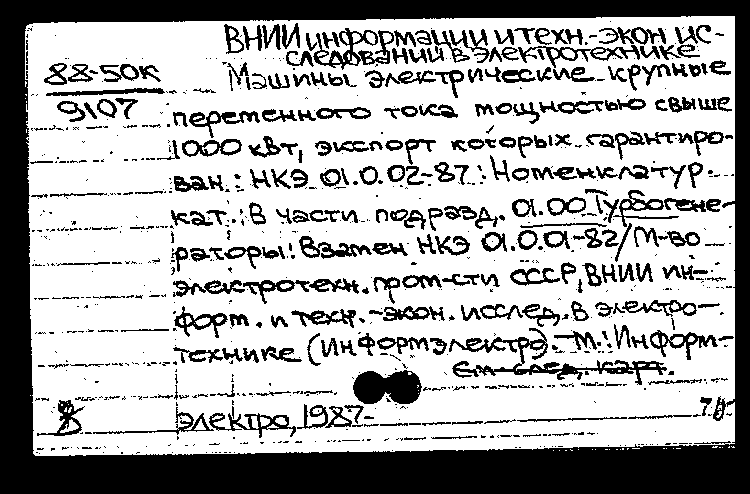 ВНИИ информации и техн.-экон ис-
следований в электротехнике
88-50к
9107
Машины электрические крупные
переменного тока мощностью свыше
1000 кВт, экспорт которых гарантиро-
ван.: НКЭ 01.0.02-87: Номенклатур.
кат.: В части подразд. 01.00 Турбогене-
раторы: Взамен НКЭ 01.0.01-82/М-во
электротехн. пром-сти СССР, ВНИИ ин-
форм. и техн.-экон. исслед. в электро-
технике (Информэлектро).-М.: Информ-
См. след. карт.
электро, 1987-